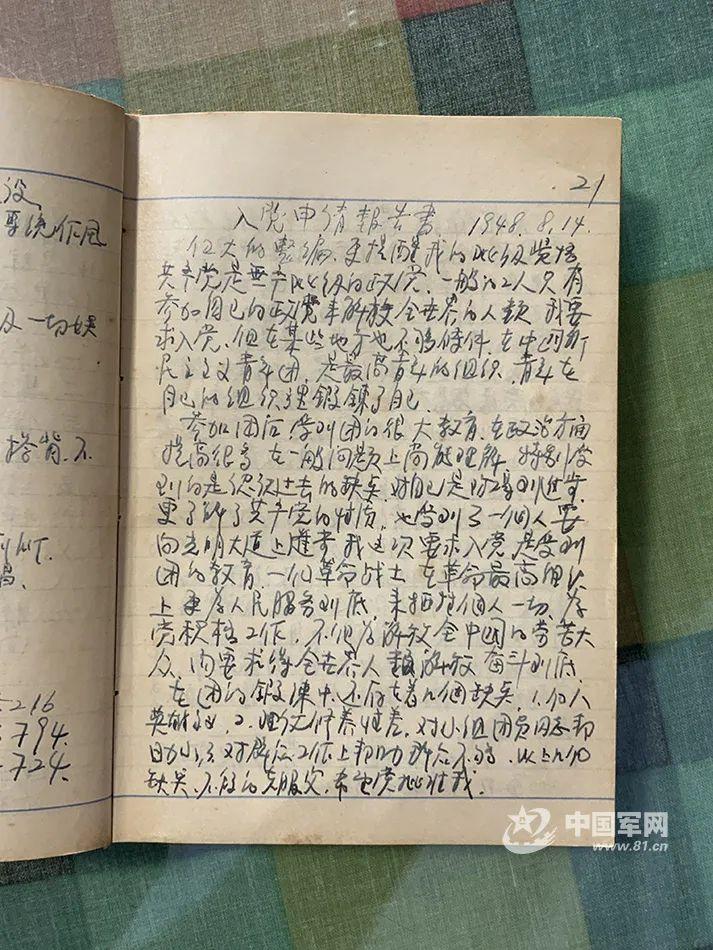 没
军统作风
及一切娱
搭背.不
216
794.
724.
.21
入党申请报告书 1948.8.14.
伟大的整编.更提醒我的阶级觉悟
共产党是无产阶级的政党.一般的工人只有
参加自己的政党来解放全世界的人类 我要
求入党.但在某些地方也不够条件.在中国新
民主主义青年团.是最高青年的组织.青年在
自己的组织里锻鍊了自己.
参加团后.受到团的很大教育.在政治方面
提高很高 在一般问题上尚能理解 特别受
到的是认识过去的缺点.对自己是
更了解了共产党的性质.也学到了一個人要
向光明大道上 我这次要求入党.是受到
团的教育.一个革命战士.在革命最高
上.要为人民服务到底.来牺牲個人一切.为
党积极工作.不但为解放全中国的劳苦大
众.而要求得全世界人類解放 奋斗到底.
在团的锻鍊中.还存在着几個缺点.1.個人
英雄.2. 修养性差.对小组团员同志帮
助小.3.对群众工作上帮助群众不够.以上几個
缺点.不够的克服它.希望党批准我.
中国军网
www.81.cn